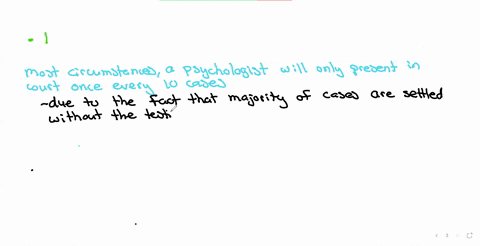 • 1
most circumstances, a psychologist will only present in
court once every 10 cases
~due to the fact that majority of cases are settled
without the testi